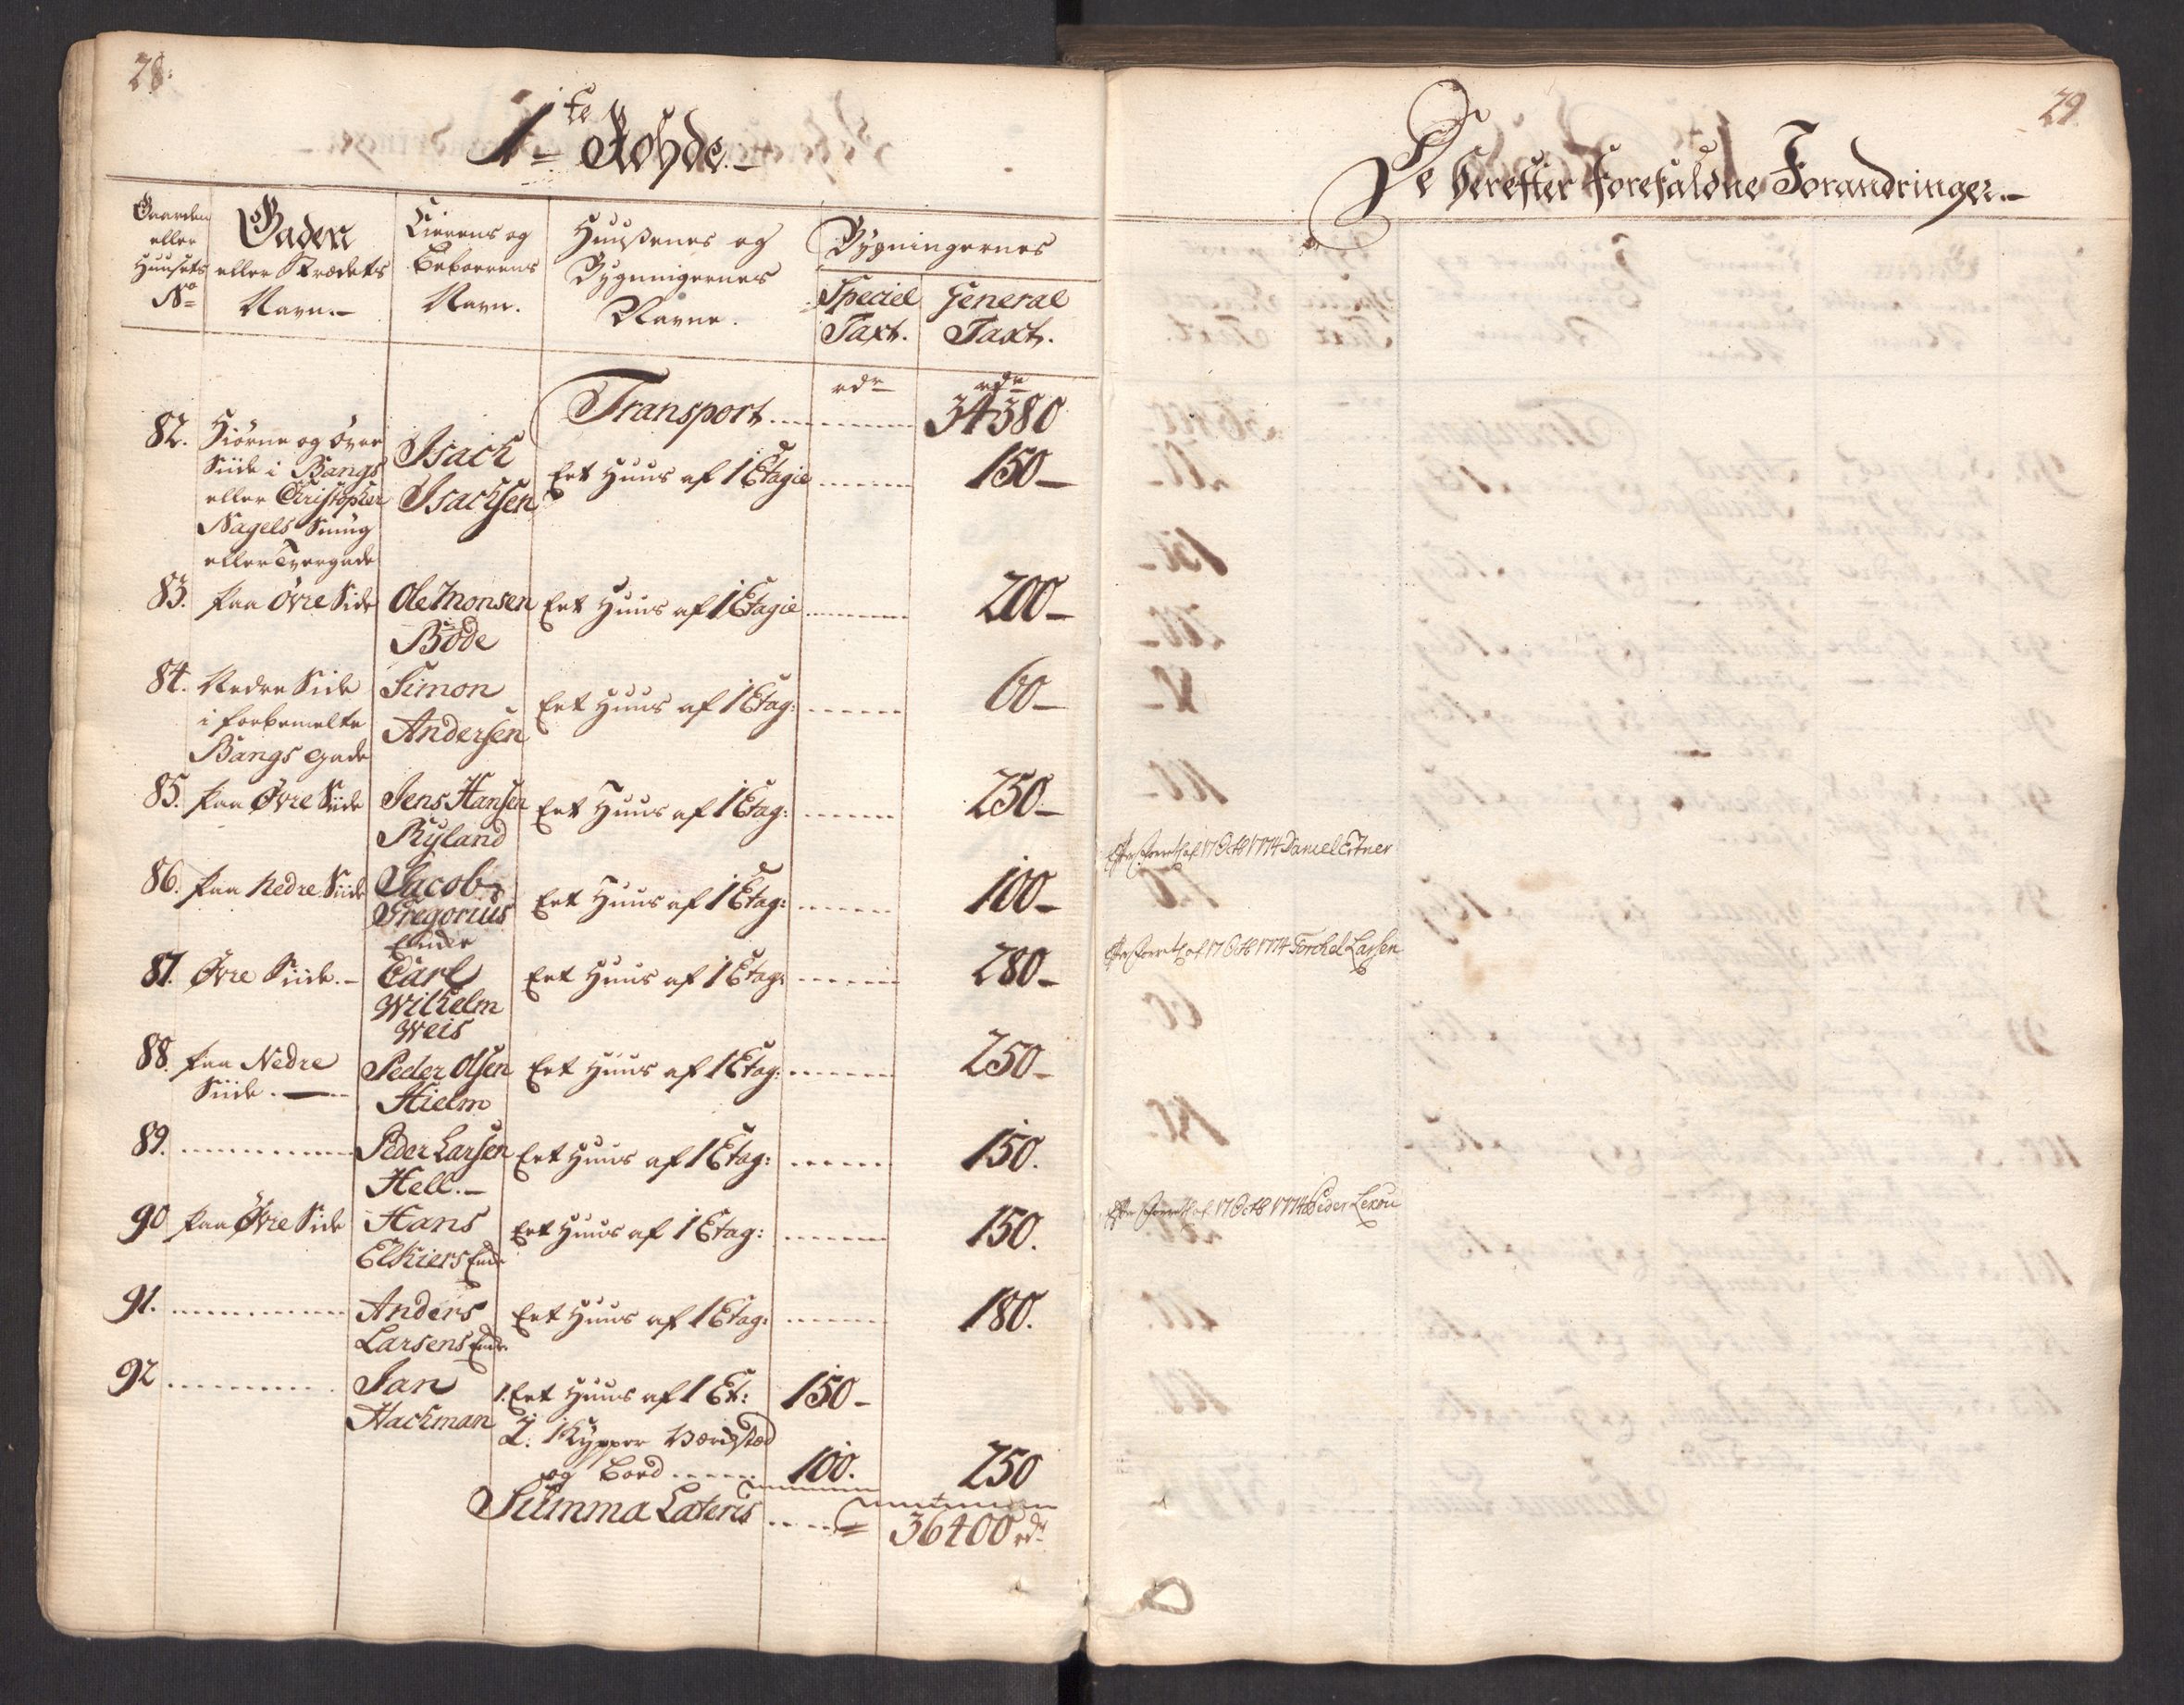 28.
1te Rohde.
Gaarden
eller
Huusets
No
Gaden
eller Strædets
Navn.
Eierens og
Beboerens
Navn.
Huussenes og
Bygningernes
Navne.
Bygningernes
Speciel
Taxt.
General
Taxt.
rdr
rdr
Transport 34380
82. Hiørne og øvre
Siide i Bangs
eller Christopher
Nagels Smug
eller Tvergade
Isach
Isachsen
Eet Huus af 1 Etagie 150
83. paa Øvre Side Ole Monsen Eet Huus af 1 Etagie 200
Böde
84. Nedre Side Simon Eet Huus af 1 Etag: 60
i forbemelte Andersen
Bangs Gade
85. paa Øvre Siide Jens Hansen Eet Huus af 1 Etag: 250
Ryland
86. paa Nedre Siide Jacob Eet Huus af 1 Etag: 100
Gregorius
Enke
87. Øvre Siide. Carl Eet Huus af 1 Etag: 280
Wilhelm
Weis
88. paa Nedre Peder Olsen Eet Huus af 1 Etag: 250
Siide. Hielm
89. Peder Larsen Eet Huus af 1 Etag: 150.
Hell.
90 paa Øvre Side Hans Eet Huus af 1 Etag: 150.
Elkiers Enke
91. Anders Eet Huus af 1 Etag: 180.
Larsens Enke
92 Jan 1. Eet Huus af 1 Et: 150
Hackman 2. Kypper Værksted
og Boed 100. 250
Summa Lateris 36400 rdr
29.
De herefter forefaldne Forandringer.
af 17 Octb 1774 Daniel Eitner
af 17 Octb 1774 Torchel Larsen
af 17 Octb 1774 Peder Lexou